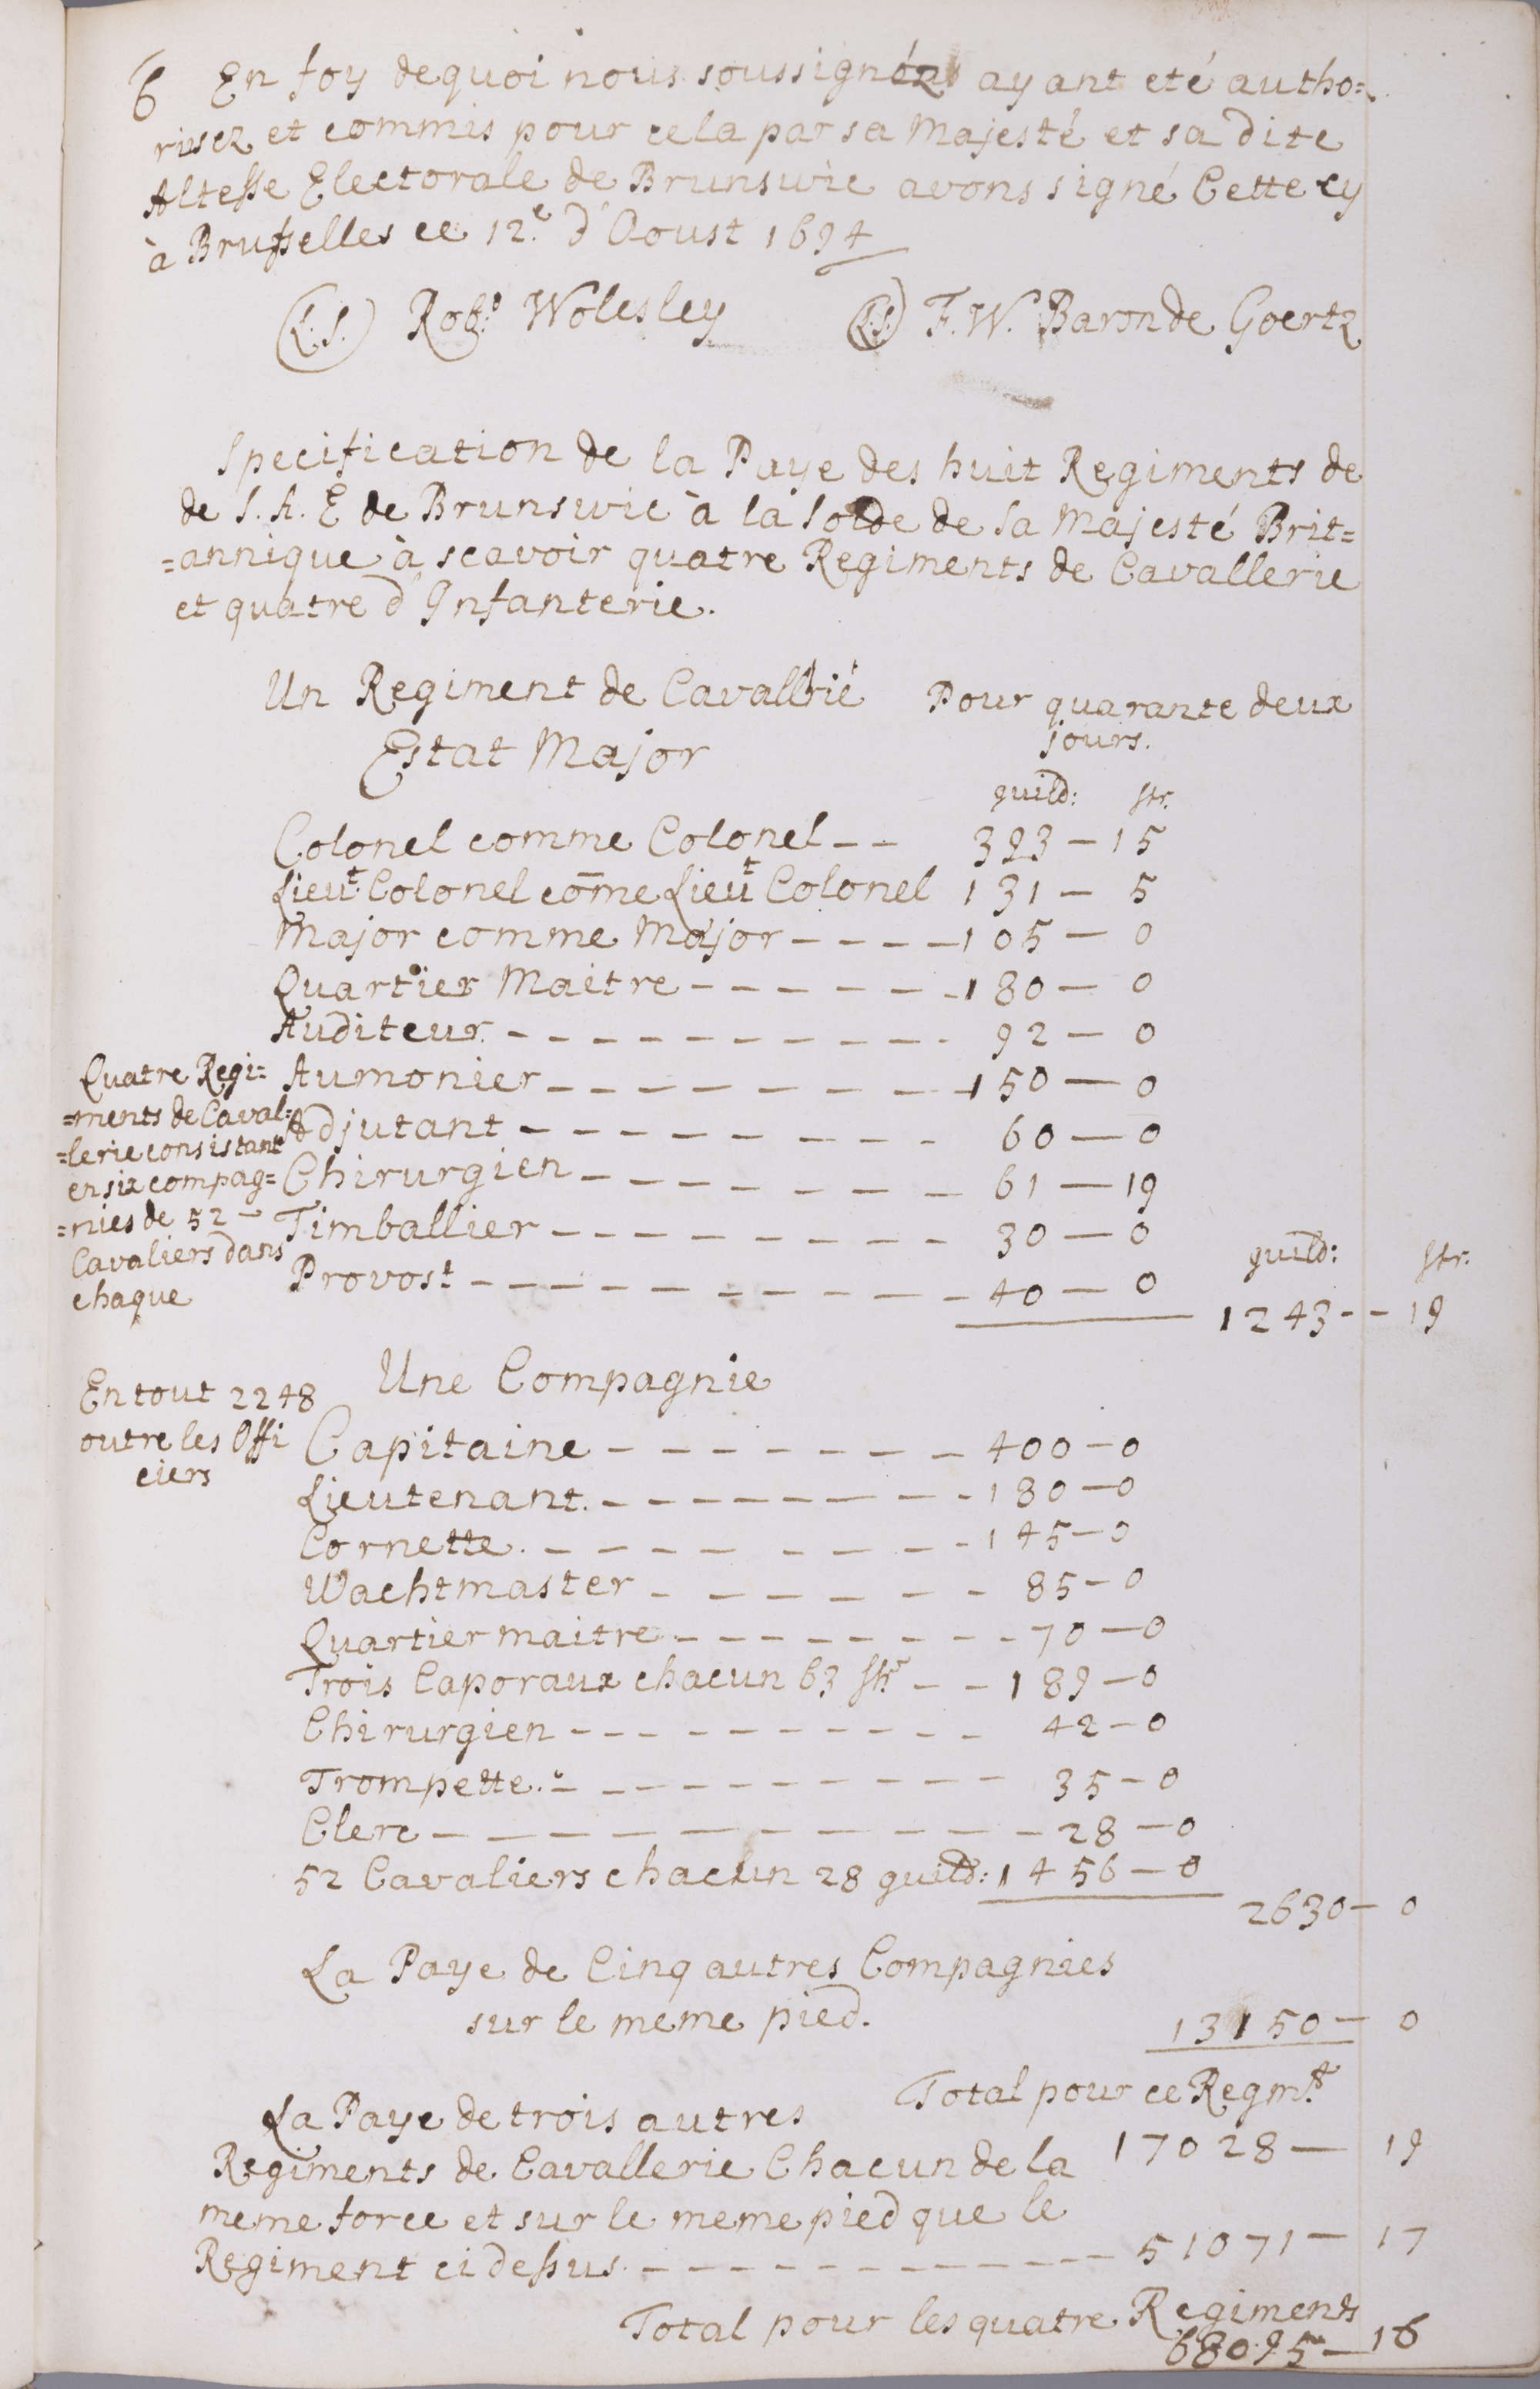 6 En foy dequoi nous soussignéz ayant eté autho=
risez et commis pour cela par sa Majesté et sa dite
Altesse Electorale de Brunswic avons signé Cette cy
à Brusselles ce 12.e d'Aoust 1694
(L.S.) Rob.t Wolesley (L.S.) F. W. Baron de Goertz
Specification de la Paye des huit Regiments de
de S. A. E de Brunswic à la Solde de Sa Majesté Brit=
=annique à scavoir quatre Regiments de Cavallerie
et quatre d'Infanterie.
Un Regiment de Cavallrié Pour quarante deux
jours.
Estat Major
guild: str.
Colonel comme Colonel - - 393 - 15
Lieut. Colonel come Lieut Colonel 131 - 5
Major comme Major - - - - 105 - 0
Quartier Maitre - - - - - - - 180 - 0
Auditeur. - - - - - - - - - - - 92 - 0
Aumonier - - - - - - - - - 150 - 0
Adjutant - - - - - - - - - 60 - 0
Chirurgien - - - - - - - - 61 - 19
Timballier - - - - - - - - - 30 - 0
Provost - - - - - - - - - - - 40 - 0
Quatre Regi=
=ments de Caval=
=lerie consistant
en six compag=
=nies de 52 -
Cavaliers dans
chaque
guild: str.
1243 - - 19
En tout 2248
outre les Offi
ciers
Une Compagnie
Capitaine - - - - - - - - 400 - 0
Lieutenant. - - - - - - - - - 180 - 0
Cornette. - - - - - - - - - 145 - 0
Wachtmaster - - - - - - - 85 - 0
Quartier maitre - - - - - - - - 70 - 0
Trois Caporaux chacun 63 str - - 189 - 0
Chirurgien - - - - - - - - - - 42 - 0
Trompette. - - - - - - - - - - 35 - 0
Clerc - - - - - - - - - - - 28 - 0
52 Cavaliers chacun 28 guild: 1456 - 0
2630 - 0
La Paye de Cinq autres Compagnies
sur le meme pied.
13150 - 0
Total pour ce Regmt.
17028 - 19
La Paye de trois autres
Regiments de Cavallerie Chacun de la
meme force et sur le meme pied que le
Regiment ci dessus. - - - - - - - - - - 51071 - 17
Total pour les quatre Regiments
68095 - 16